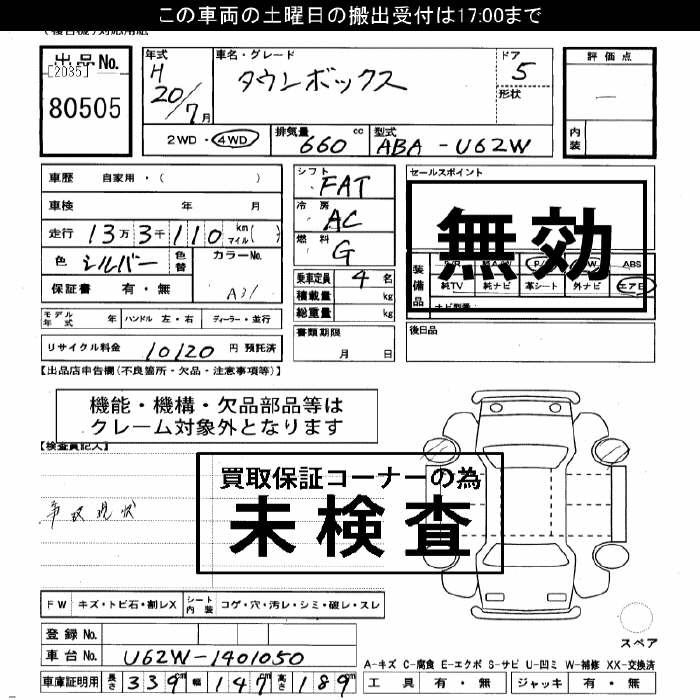 この車両の土曜日の搬出受付は17:00まで
出品No.
[2035]
80505
年式
H
20/7月
車名・グレード
タウンボックス
ドア
5
形状
評価点
内装
2WD・4WD
排気量
660 cc
型式
ABA-U62W
車歴 自家用・( )
車検 年 月
走行 13万3千110 km マイル( )
色 シルバー 色替
カラーNo.
A31
保証書 有・無
モデル年式 年 ハンドル 左・右 ディーラー・並行
リサイクル料金 10120 円 預託済
シフト
FAT
冷房
AC
燃料
G
乗車定員 4 名
積載量 kg
総重量 kg
書類期限
月 日
セールスポイント
無効
装備品
ABS
純TV 純ナビ 革シート 外ナビ エアB
後日品
【出品店申告欄(不良箇所・欠品・注意事項等)】
機能・機構・欠品部品等は
クレーム対象外となります
【検査員記入】
買取保証コーナーの為
未検査
事故現状
FW キズ・トビ石・割レX
シート内装 コゲ・穴・汚レ・シミ・破レ・スレ
登録No.
車台No. U62W-1401050
車庫証明用 長さ 339m 幅 147m 高さ 189m
スペア
A-キズ C-腐食 E-エクボ S-サビ U-凹ミ W-補修 XX-交換済
工具 有・無 ジャッキ 有・無